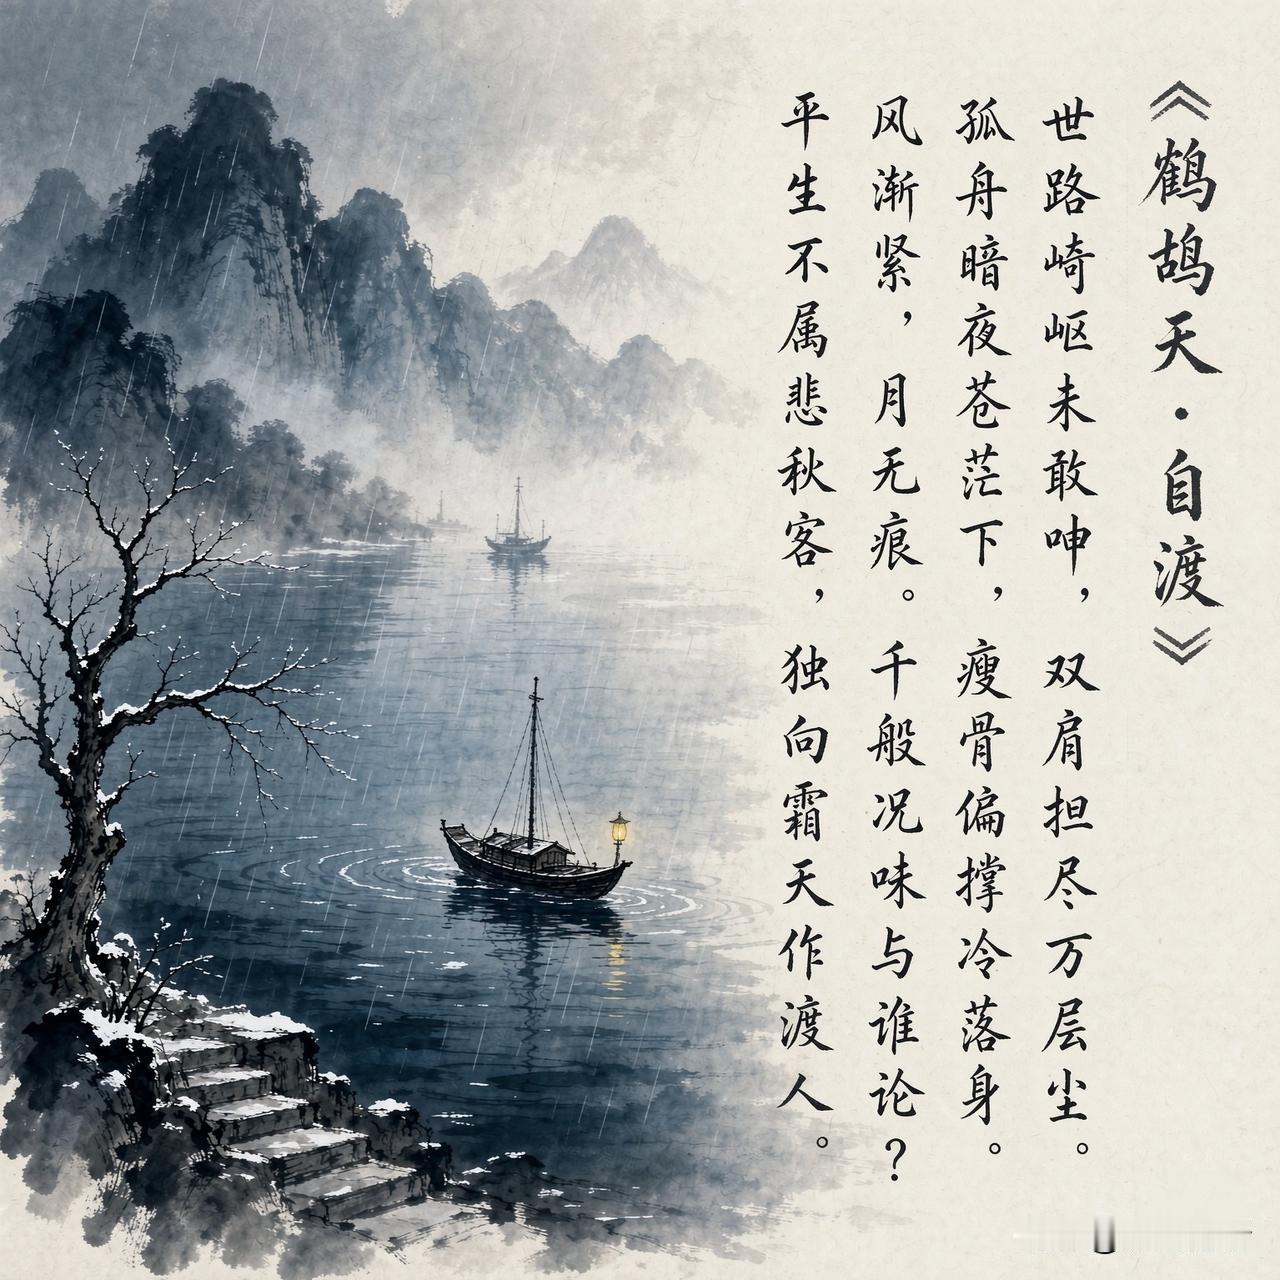 《鹤鸪天·自渡》
世路崎岖未敢呻，双肩担尽万层尘。
孤舟暗夜苍茫下，瘦骨偏撑冷落身。
风渐紧，月无痕。千般况味与谁论？
平生不属悲秋客，独向霜天作渡人。